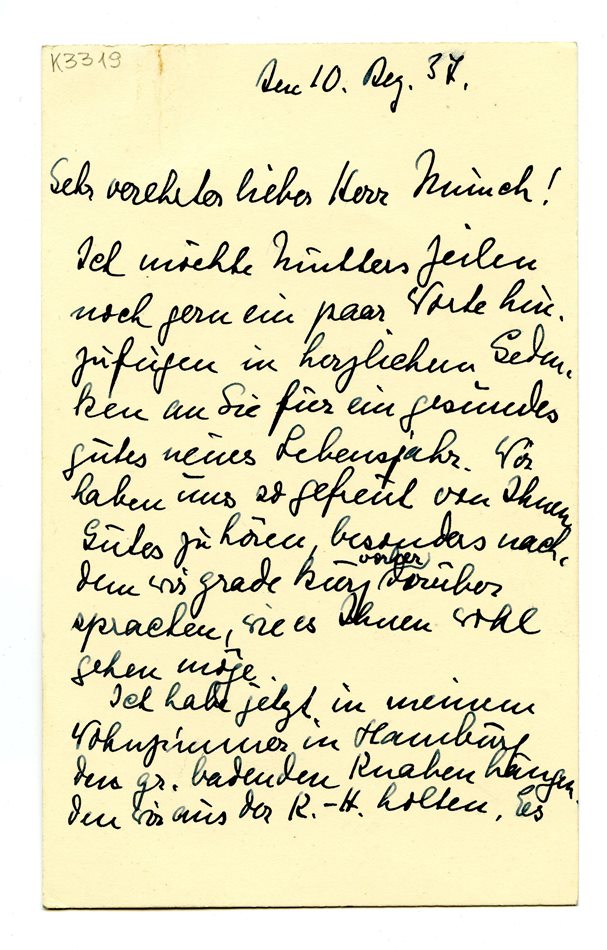 K3319
Den 10. Dez. 37.
Sehr verehrter lieber Herr Munch!
Ich möchte Mutters Zeilen
noch gern ein paar Worte hin-
zufügen in herzlichem Geden-
ken an Sie für ein gesundes
gutes neues Lebensjahr. Wir
haben uns so gefreut von Ihnen
Gutes zu hören, besonders nach-
dem wir grade kurz vorher darüber
sprachen, wie es Ihnen wohl
gehen möge.
Ich habe jetzt in meinem
Wohnzimmer in Hamburg
den gr. badenden Knaben hängen
den wir aus der K.-H. holten. Es